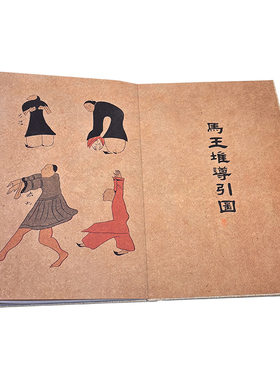 馬王堆導引圖